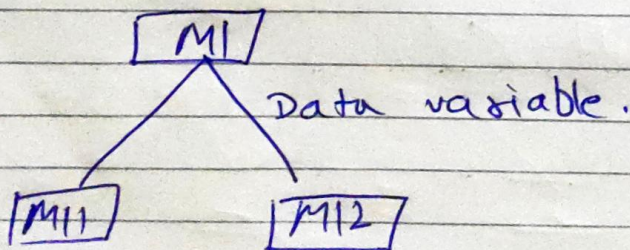 M1
Data variable.
M11
M12